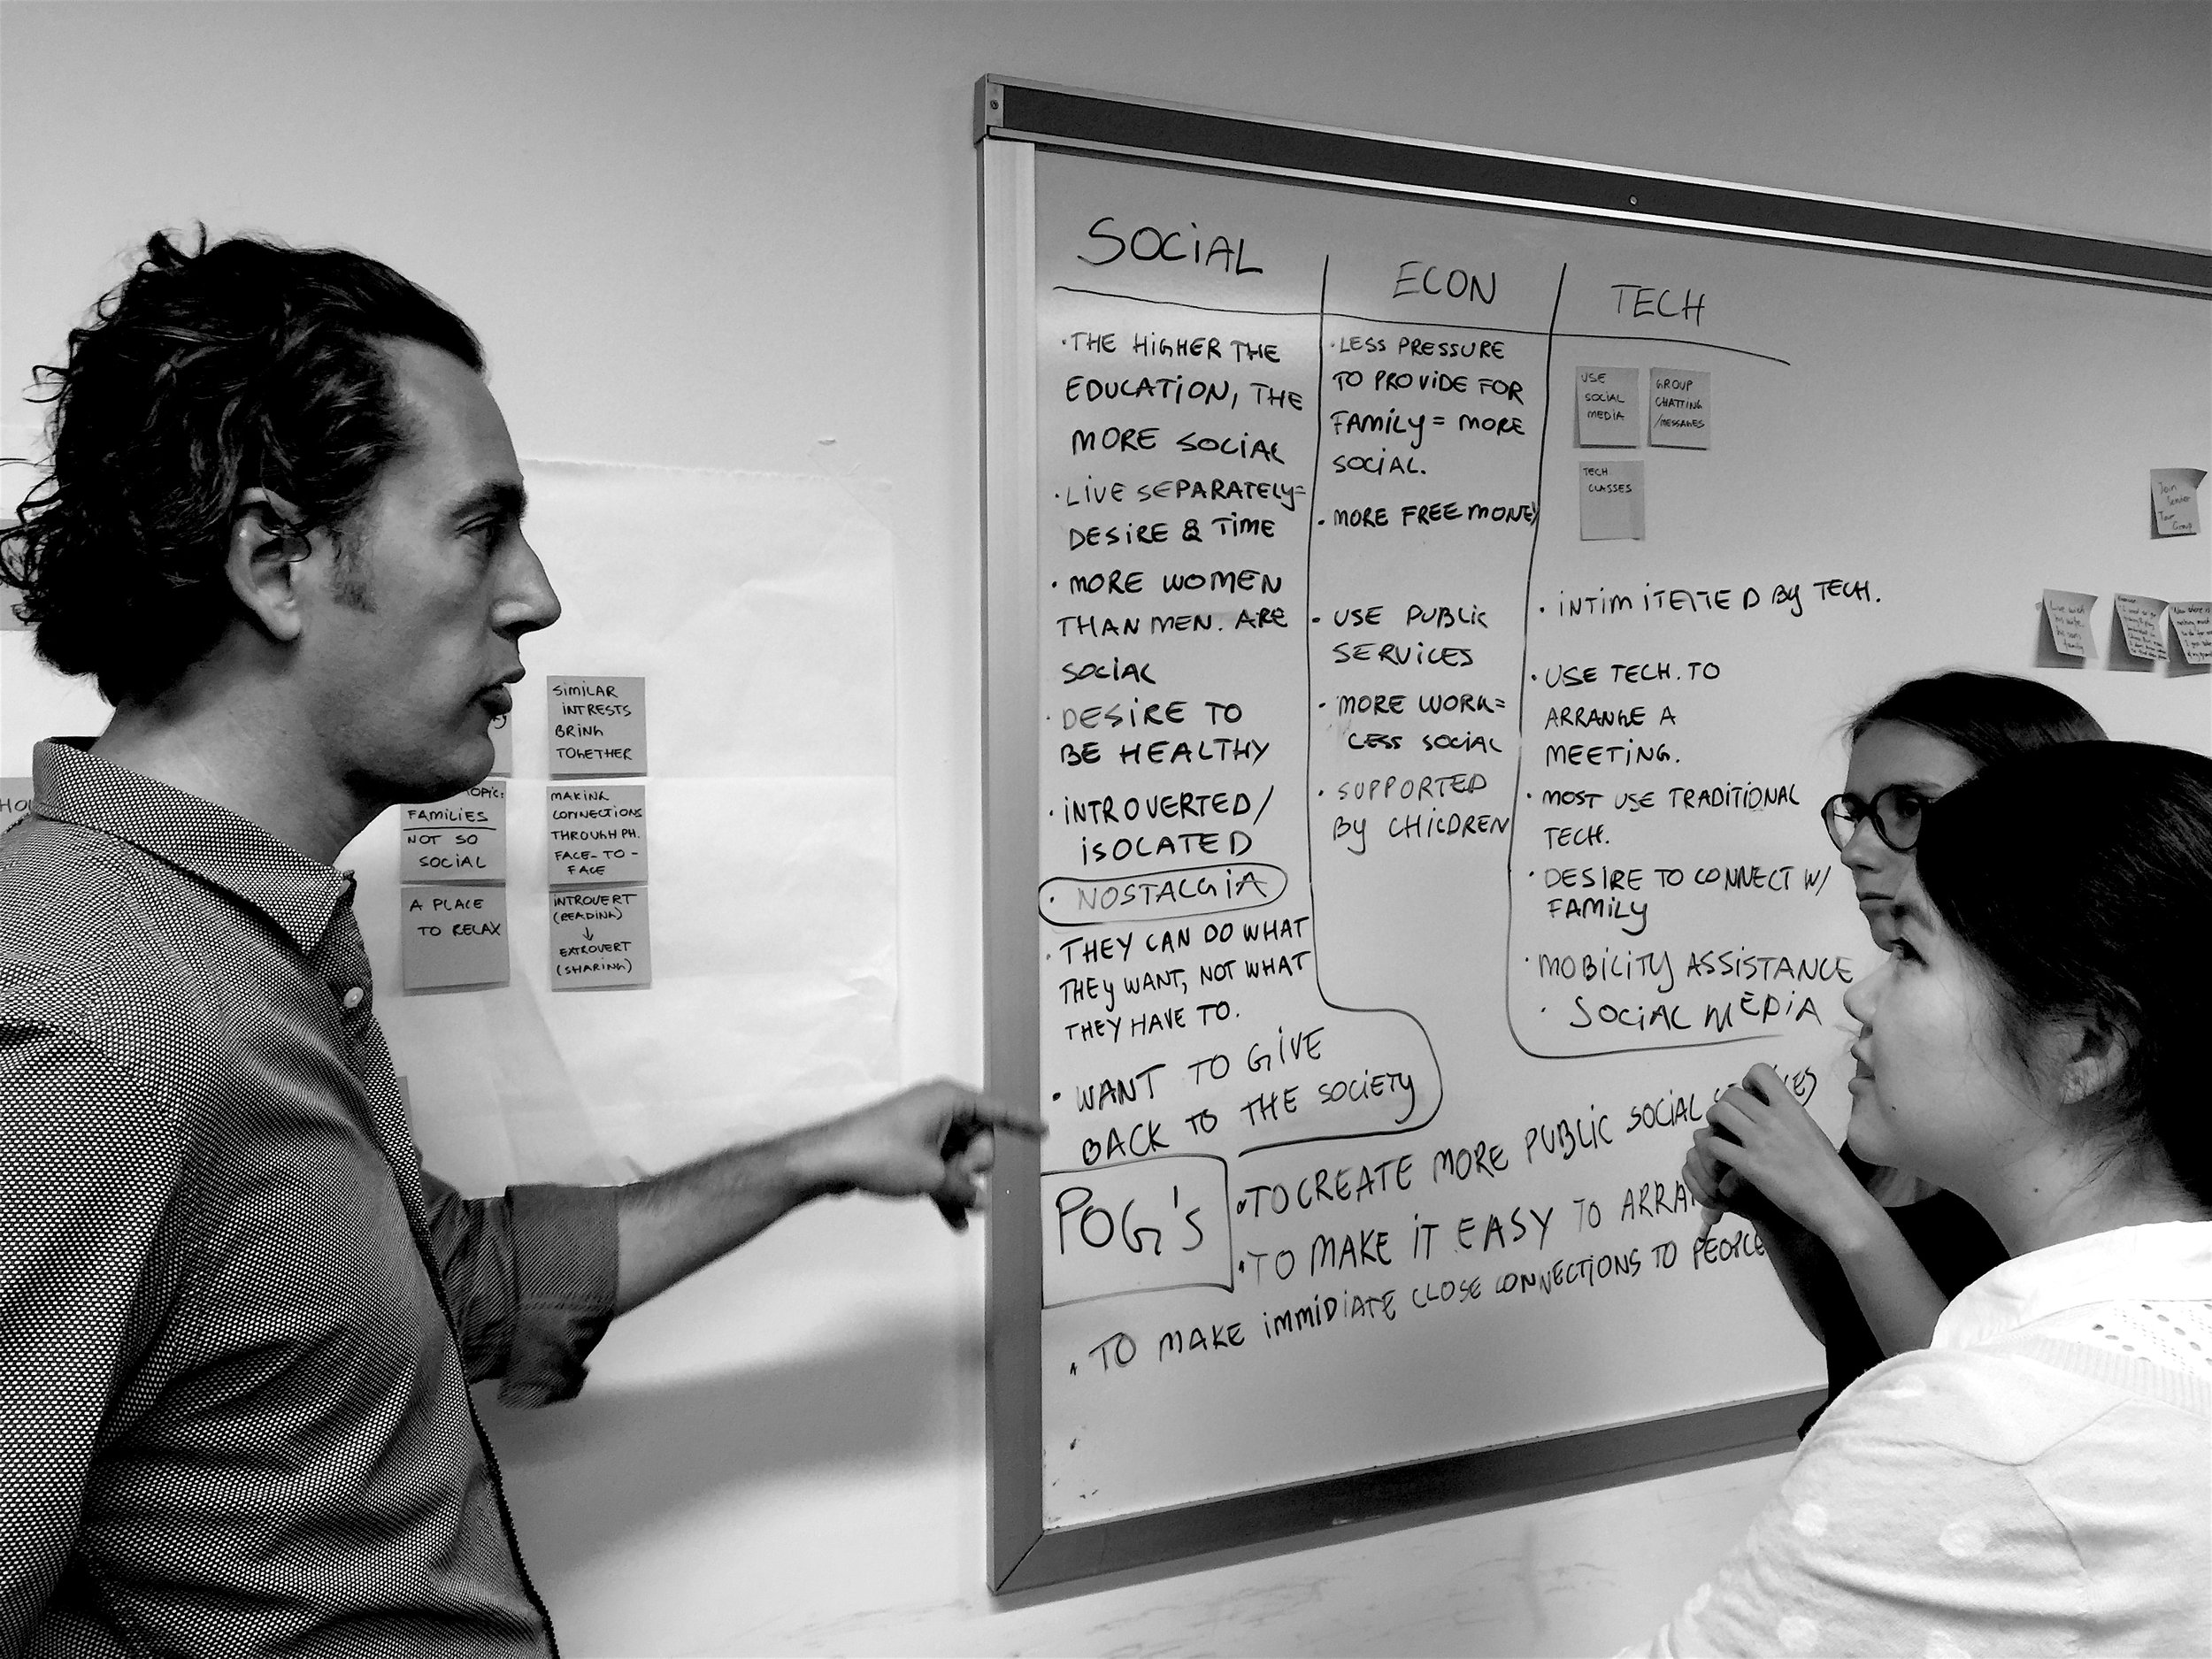 SOCIAL
· THE HIGHER THE
EDUCATION, THE
MORE SOCIAL
· LIVE SEPARATELY=
DESIRE & TIME
· MORE WOMEN
THAN MEN. ARE
SOCIAL
· DESIRE TO
BE HEALTHY
· INTROVERTED/
ISOLATED
· NOSTALGIA
· THEY CAN DO WHAT
THEY WANT, NOT WHAT
THEY HAVE TO.
· WANT TO GIVE
BACK TO THE SOCIETY
ECON
· LESS PRESSURE
TO PROVIDE FOR
FAMILY = MORE
SOCIAL.
· MORE FREE MONEY
· USE PUBLIC
SERVICES
· MORE WORK=
LESS SOCIAL
· SUPPORTED
BY CHILDREN
TECH
USE
SOCIAL
MEDIA
GROUP
CHATTING
/MESSAGES
TECH
CLASSES
· INTIMITETTED BY TECH.
· USE TECH. TO
ARRANGE A
MEETING.
· MOST USE TRADITIONAL
TECH.
· DESIRE TO CONNECT W/
FAMILY
· MOBILITY ASSISTANCE
· SOCIAL MEDIA
POG'S
· TO CREATE MORE PUBLIC SOCIAL
· TO MAKE IT EASY TO
· TO MAKE IMMIDIATE CLOSE CONNECTIONS TO PEOPLE
SIMILAR
INTRESTS
BRING
TOGETHER
OPIC:
FAMILIES
NOT SO
SOCIAL
MAKING
CONNECTIONS
THROUGH PH.
FACE-TO-
FACE
A PLACE
TO RELAX
INTROVERT
(READING)
↓
EXTROVERT
(SHARING)
Join
Tour
Group
Live with
his wife
family